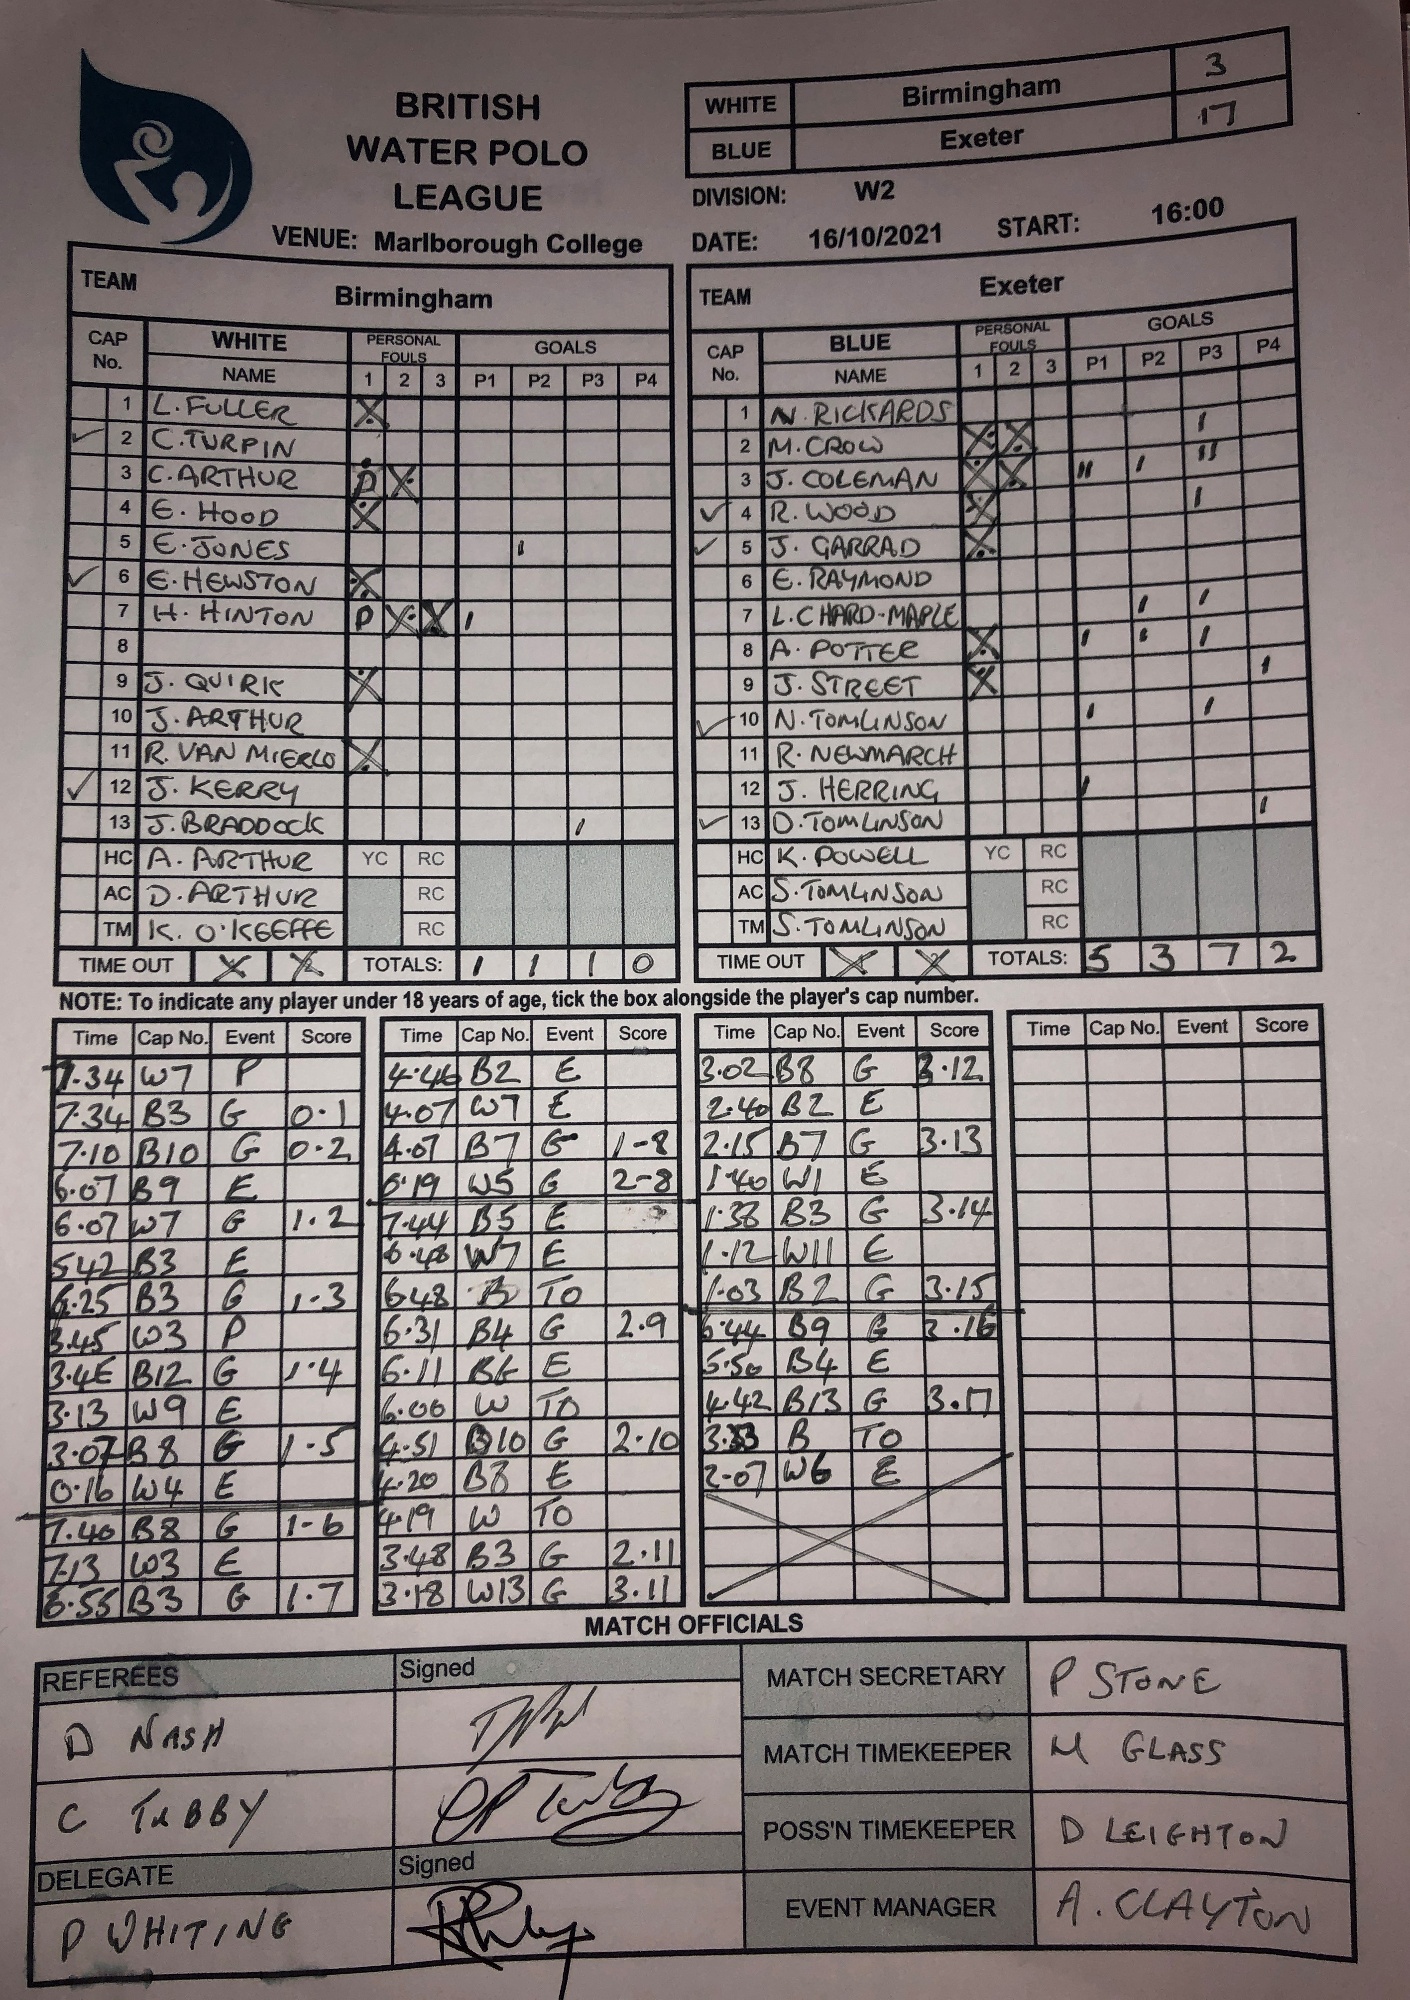 BRITISH
WATER POLO
LEAGUE
WHITE Birmingham 3
BLUE Exeter 17
DIVISION: W2
VENUE: Marlborough College DATE: 16/10/2021 START: 16:00
TEAM Birmingham
CAP No. WHITE PERSONAL FOULS GOALS
NAME 1 2 3 P1 P2 P3 P4
1 L. FULLER X
✓ 2 C. TURPIN
3 C. ARTHUR P X
4 E. HOOD X
5 E. JONES I
✓ 6 E. HEWSTON X
7 H. HINTON P X X I
8
9 J. QUIRK X
10 J. ARTHUR
11 R. VAN MIERLO X
✓ 12 J. KERRY
13 J. BRADDOCK I
HC A. ARTHUR YC RC
AC D. ARTHUR RC
TM K. O'KEEFFE RC
TIME OUT 1 2 TOTALS: 1 1 1 0
TEAM Exeter
CAP No. BLUE PERSONAL FOULS GOALS
NAME 1 2 3 P1 P2 P3 P4
1 N. RICKARDS
2 M. CROW X X I
3 J. COLEMAN X X II I II
✓ 4 R. WOOD X I
✓ 5 J. GARRAD X
6 E. RAYMOND
7 L. CHARD-MAPLE I I
8 A. POTTER X I I I
9 J. STREET X I
✓ 10 N. TOMLINSON I I
11 R. NEWMARCH
12 J. HERRING I
✓ 13 D. TOMLINSON I
HC K. POWELL YC RC
AC S. TOMLINSON RC
TM S. TOMLINSON RC
TIME OUT 1 2 TOTALS: 5 3 7 2
NOTE: To indicate any player under 18 years of age, tick the box alongside the player's cap number.
Time Cap No. Event Score
7.34 W7 P
7.34 B3 G 0.1
7.10 B10 G 0.2
6.07 B9 E
6.07 W7 G 1.2
5.42 B3 E
B3 G 1-3
3.45 W3 P
B12 G 1.4
3.13 W9 E
3.07 B8 G 1-5
0.16 W4 E
7.40 B8 G 1-6
7.13 W3 E
6.55 B3 G 1.7
Time Cap No. Event Score
4.46 B2 E
4.07 W7 E
4.07 B7 G 1-8
W5 G 2-8
7.44 B5 E
6.48 W7 E
6.48 B TO
6.31 B4 G 2.9
6.11 E
6.00 W TO
4.51 B10 G 2.10
4.20 B8 E
4.19 W TO
3.48 B3 G 2.11
3.18 W13 G 3.11
Time Cap No. Event Score
3.02 B8 G 3.12
2.40 B2 E
2.15 B7 G 3.13
1.40 W1 E
1.38 B3 G 3.14
1.12 W11 E
1.03 B2 G 3.15
6.44 B9 G 3.16
5.50 B4 E
4.42 B13 G 3.17
B TO
2-07 W6 E
Time Cap No. Event Score
MATCH OFFICIALS
REFEREES Signed
D NASH
C TUBBY
DELEGATE Signed
P WHITING
MATCH SECRETARY P STONE
MATCH TIMEKEEPER M GLASS
POSS'N TIMEKEEPER D LEIGHTON
EVENT MANAGER A. CLAYTON